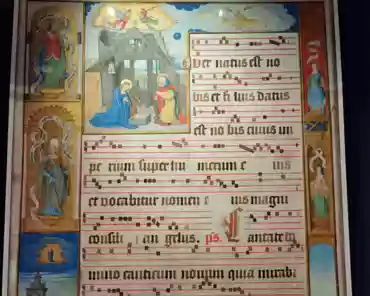 uer natus est no
bis et fili us datus
est no bis cuius im
pe rium super hu merum e ius
et vocabitur nomen e ius magni
consili i an gelus. ps. Cantate do
mino canticum novum quia mirabi